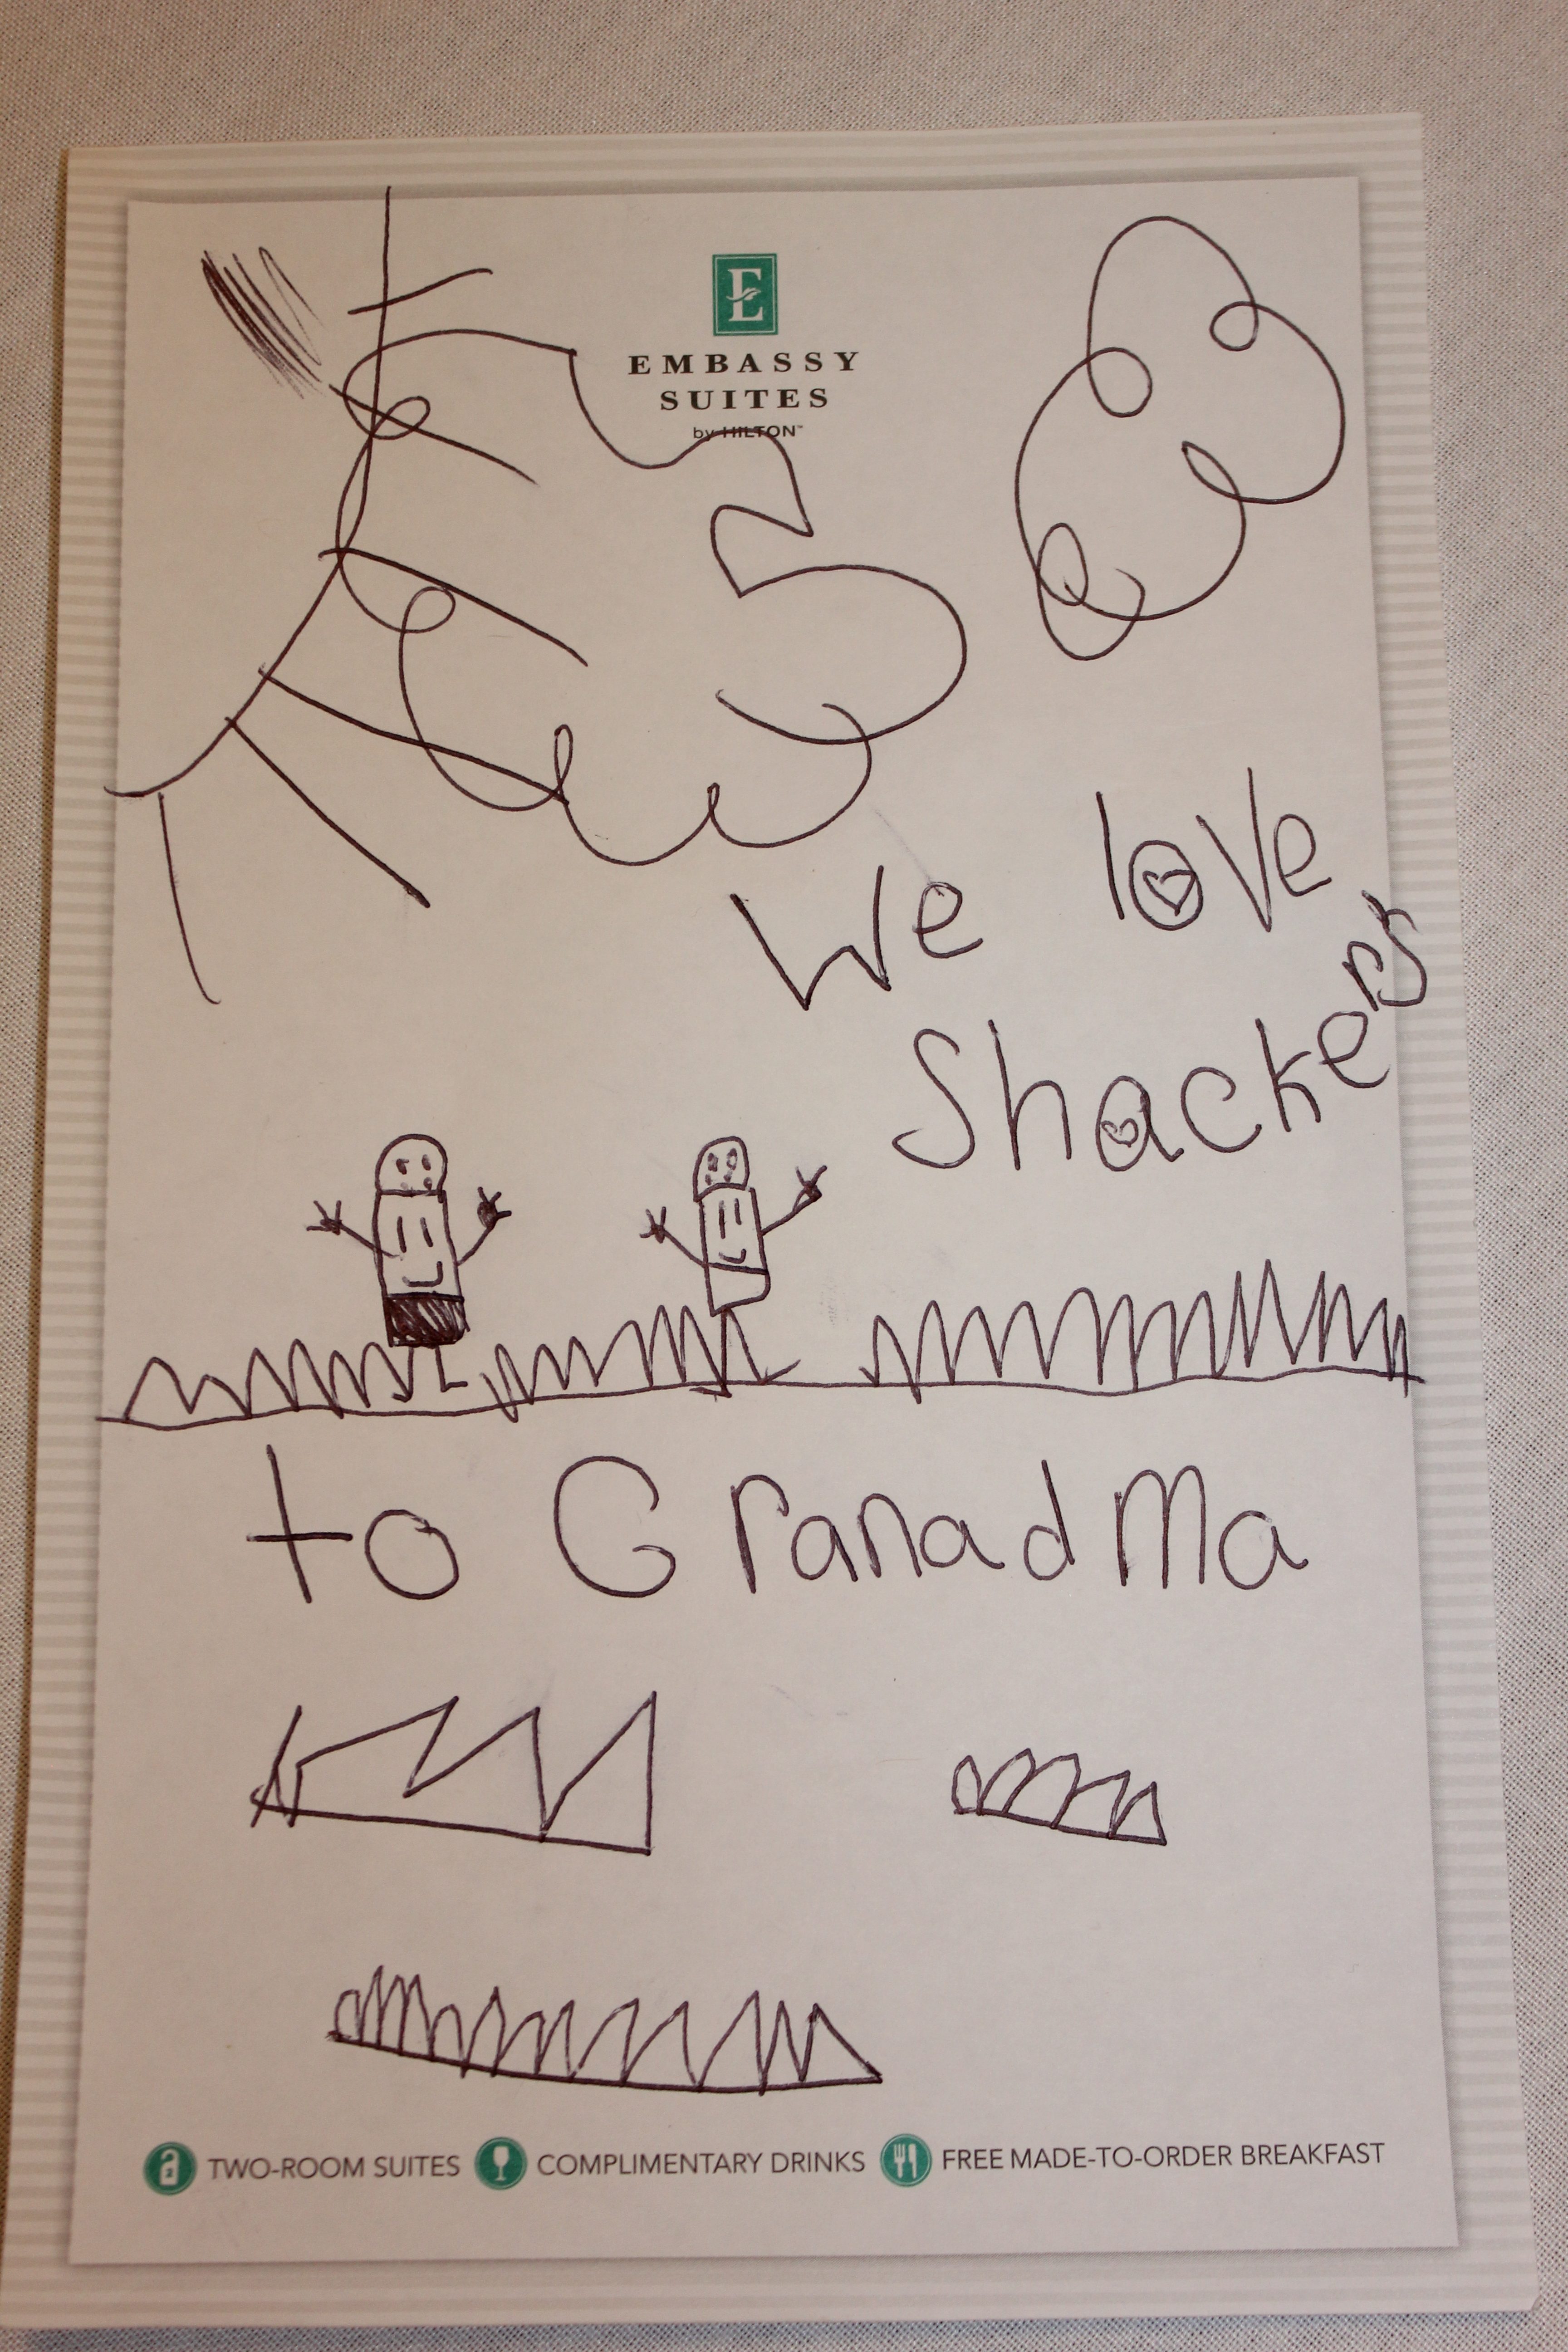 E
EMBASSY
SUITES
by HILTON™
We love
Shackers
to GranadMa
TWO-ROOM SUITES COMPLIMENTARY DRINKS FREE MADE-TO-ORDER BREAKFAST